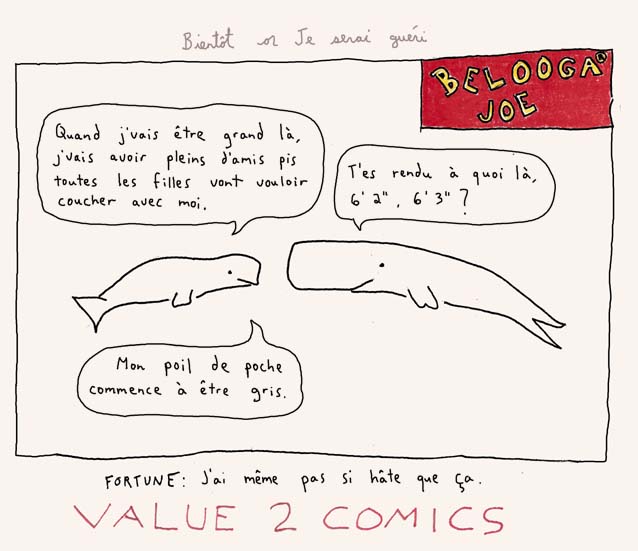 Bientôt or Je serai guéri
BELOOGA
JOE
Quand j'vais être grand là,
j'vais avoir pleins d'amis pis
toutes les filles vont vouloir
coucher avec moi.
T'es rendu à quoi là,
6' 2", 6' 3" ?
Mon poil de poche
commence à être gris.
FORTUNE: J'ai même pas si hâte que ça.
VALUE 2 COMICS